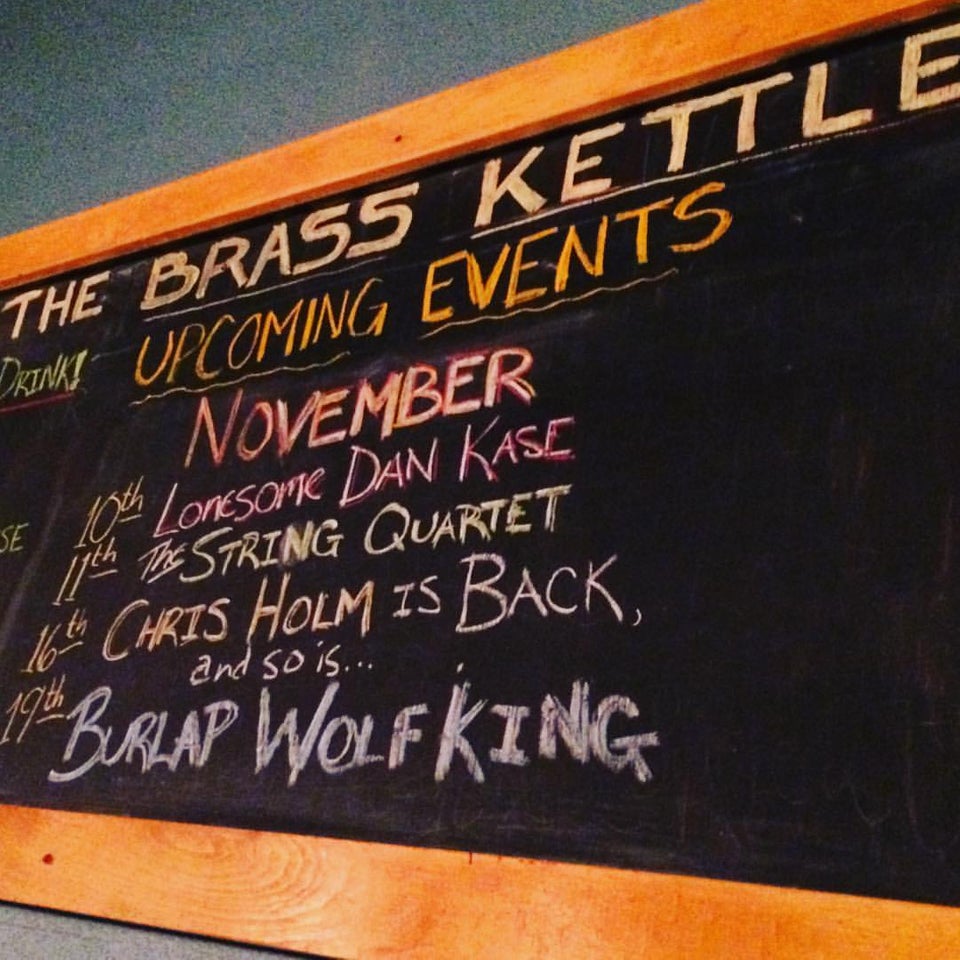 THE BRASS KETTLE
UPCOMING EVENTS
DRINK!
NOVEMBER
10th LONESOME DAN KASE
11th THE STRING QUARTET
16th CHRIS HOLM IS BACK,
and so is...
19th BURLAP WOLF KING